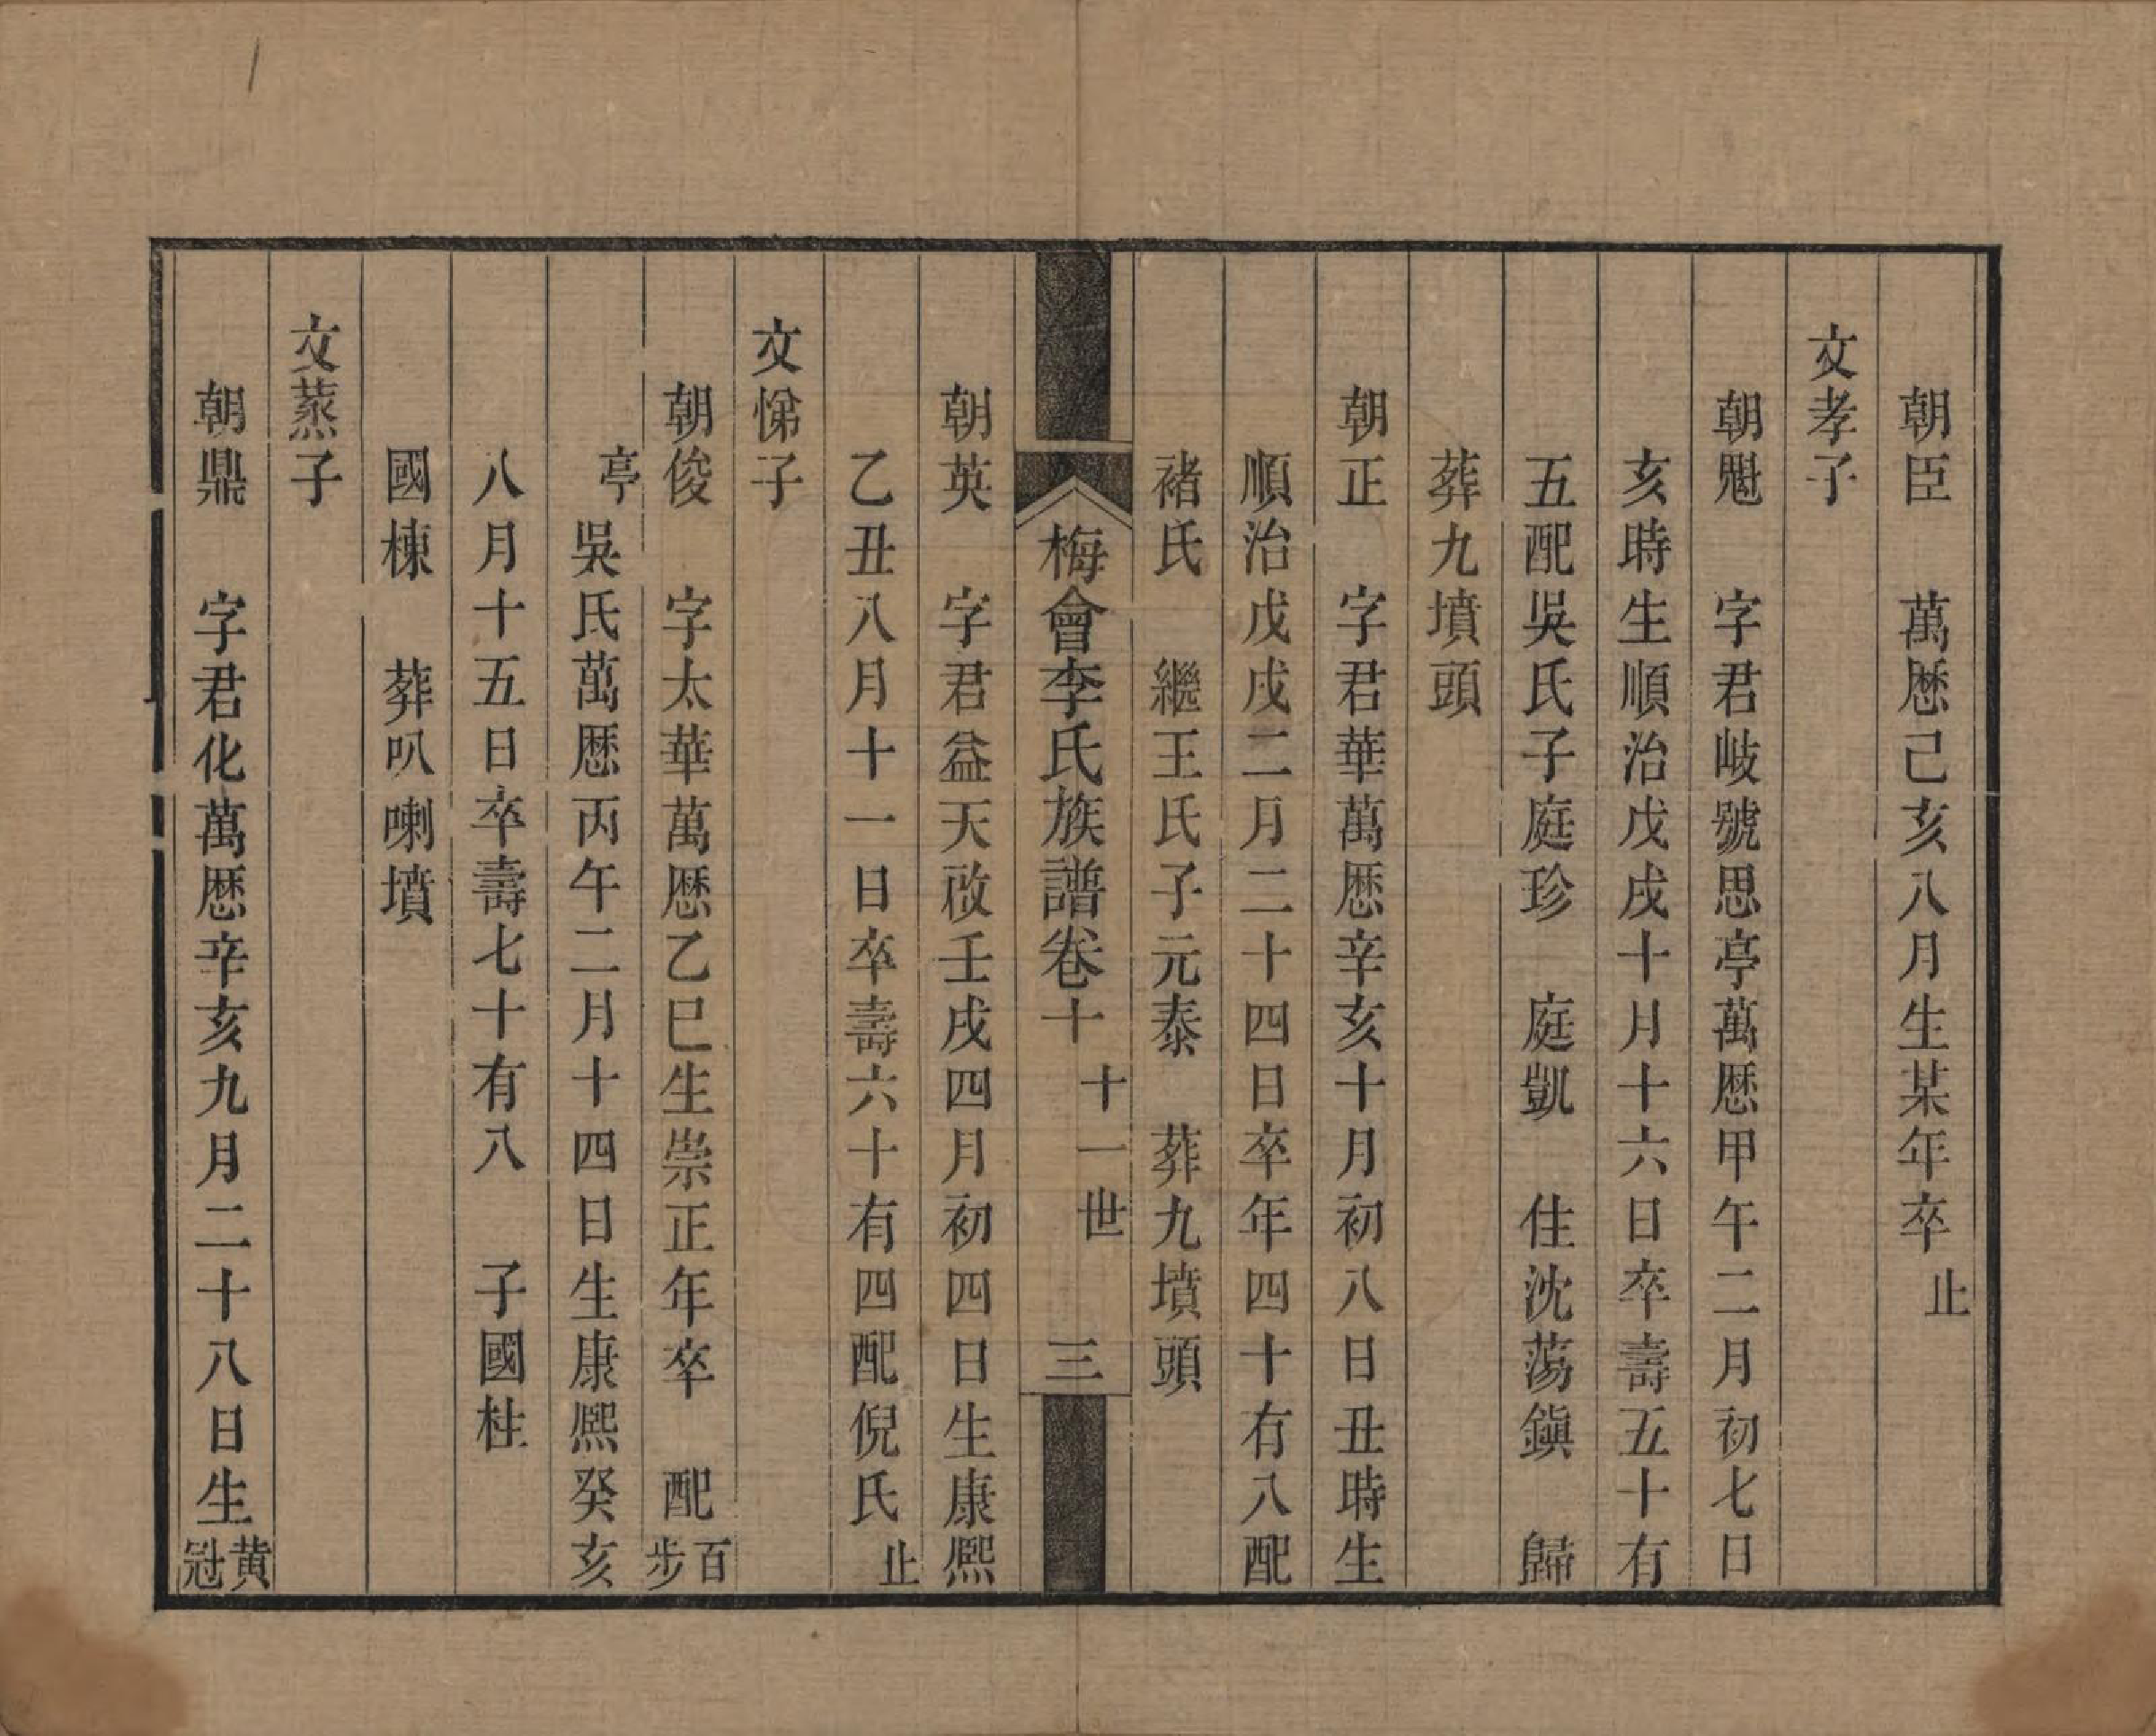 朝臣　萬厯己亥八月生某年卒止
文孝子
朝魁　字君岐號思亭萬厯甲午二月初七日
亥時生順治戊戌十月十六日卒壽五十有
五配吳氏子庭珍　庭凱　住沈蕩鎭　歸
葬九墳頭
朝正　字君華萬厯辛亥十月初八日丑時生
順治戊戌二月二十四日卒年四十有八配
褚氏　繼王氏子元泰　葬九墳頭
梅會李氏族譜卷十　十一世　三
朝英　字君益天啟壬戌四月初四日生康熙
乙丑八月十一日卒壽六十有四配倪氏止
文悌子
朝俊　字太華萬厯乙巳生崇正年卒　配百步
亭吳氏萬厯丙午二月十四日生康熙癸亥
八月十五日卒壽七十有八　子國柱
國棟　葬叭喇墳
文蒸子
朝鼎　字君化萬厯辛亥九月二十八日生黄冠